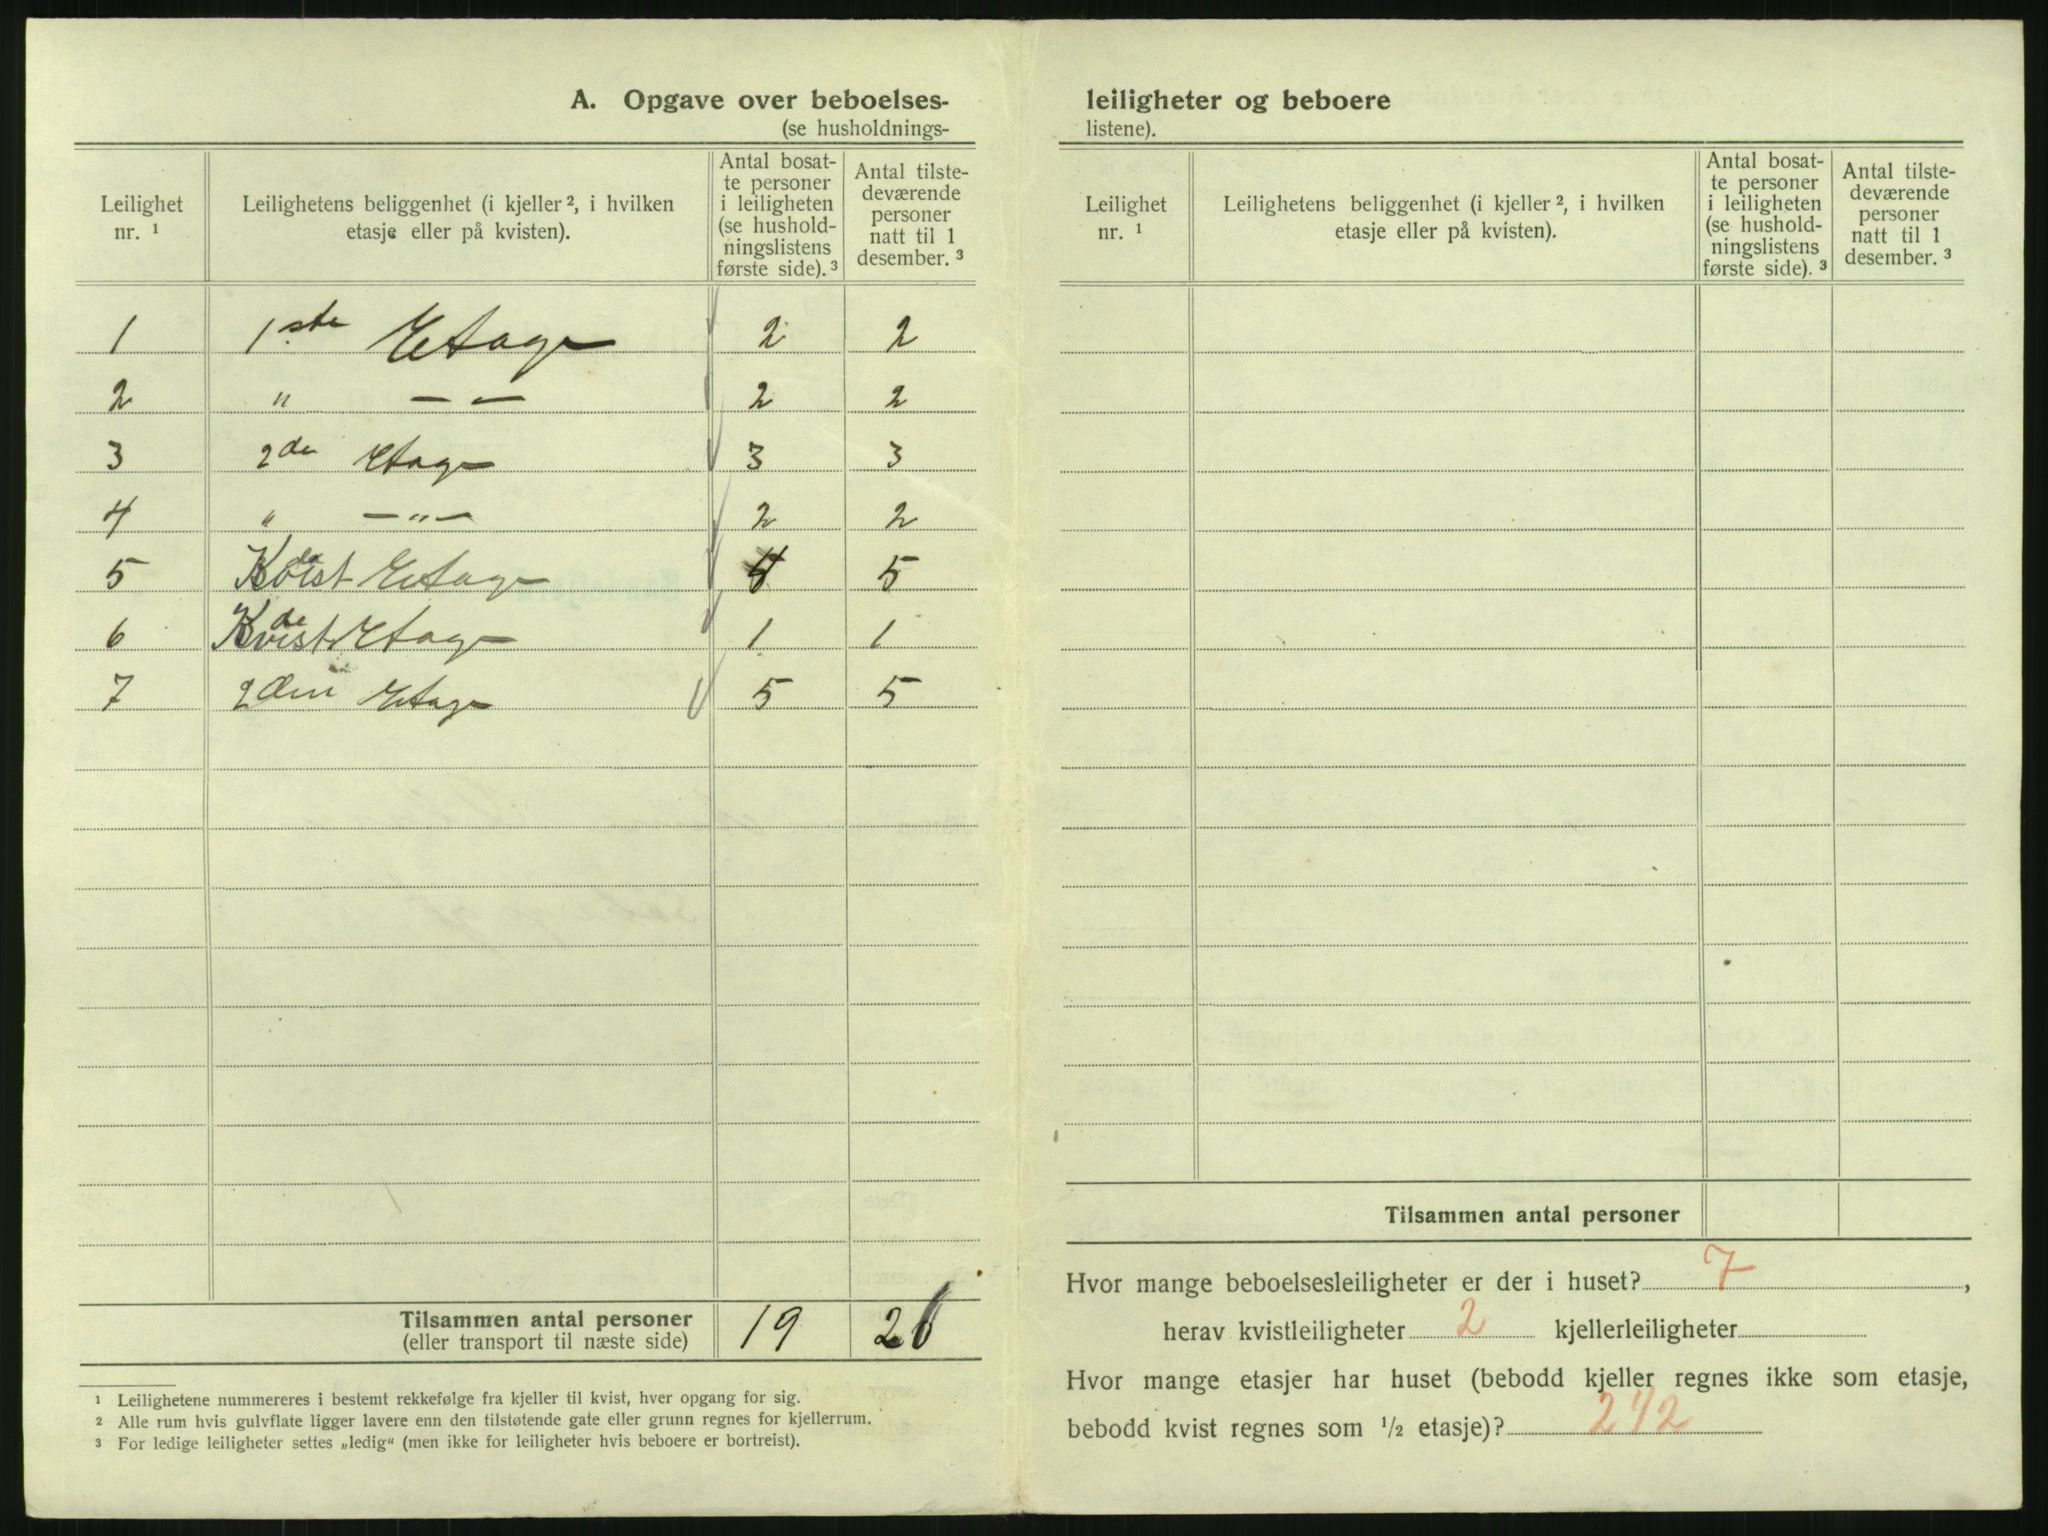 A. Opgave over beboelses-
(se husholdnings-
Leilighet nr. ¹ | Leilighetens beliggenhet (i kjeller ², i hvilken etasje eller på kvisten). | Antal bosatte personer i leiligheten (se husholdningslistens første side). ³ | Antal tilstedeværende personer natt til 1 desember. ³
1 1ste Etage 2 2
2 " — — 2 2
3 2de Etage 3 3
4 " —"— 2 2
5 Kvist Etage 5
6 Kvist Etage 1 1
7 2den Etage 5 5
Tilsammen antal personer 19
(eller transport til næste side)
¹ Leilighetene nummereres i bestemt rekkefølge fra kjeller til kvist, hver opgang for sig.
² Alle rum hvis gulvflate ligger lavere enn den tilstøtende gate eller grunn regnes for kjellerrum.
³ For ledige leiligheter settes „ledig“ (men ikke for leiligheter hvis beboere er bortreist).
leiligheter og beboere
listene).
Leilighet nr. ¹ | Leilighetens beliggenhet (i kjeller ², i hvilken etasje eller på kvisten). | Antal bosatte personer i leiligheten (se husholdningslistens første side). ³ | Antal tilstedeværende personer natt til 1 desember. ³
Tilsammen antal personer
Hvor mange beboelsesleiligheter er der i huset? 7,
herav kvistleiligheter 2 kjellerleiligheter
Hvor mange etasjer har huset (bebodd kjeller regnes ikke som etasje,
bebodd kvist regnes som ½ etasje)? 2 ½